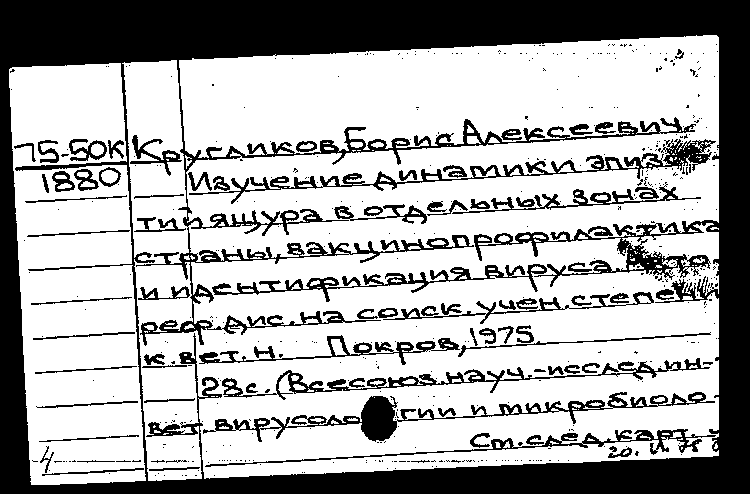 75-50К Кругликов, Борис Алексеевич.
1880 Изучение динамики эпизоо-
тий ящура в отдельных зонах
страны, вакцинопрофилактика
и идентификация вируса. Авто-
реф. дис. на соиск. учен. степени
к. вет. н. Покров, 1975.
28с. (Всесоюз. науч.-исслед. ин-
вет. вирусологии и микробиоло-
См. след. карт.
4